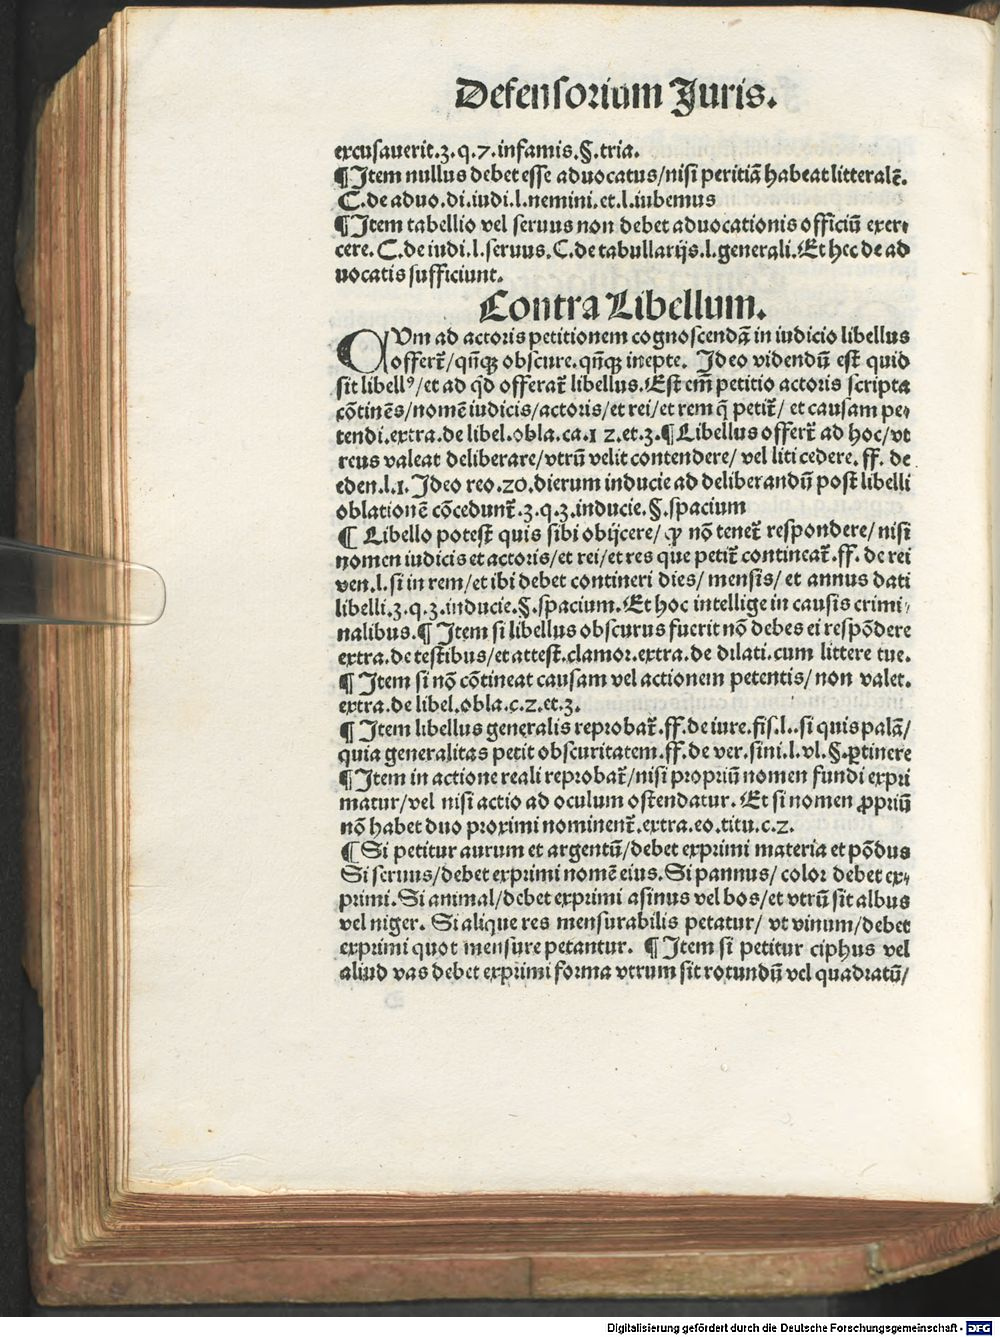 Defensorium Juris.
excusauerit.3.q.7.infamis.§.tria.
¶Item nullus debet esse aduocatus/nisi peritiā habeat litteralē.
C.de aduo.di.iudi.l.nemini.et.l.iubemus
¶Item tabellio vel seruus non debet aduocationis officiū exer⸗
cere.C.de iudi.l.seruus.C.de tabullarijs.l.generali.Et hec de ad
uocatis sufficiunt.
Contra Libellum.
CVm ad actoris petitionem cognoscendā in iudicio libellus
offert̄/qn̄qꝫ obscure.qn̄qꝫ inepte. Ideo videndū est quid
sit libellꝰ/et ad qd offerat̄ libellus.Est em̄ petitio actoris scripta
cōtinēs/nomē iudicis/actoris/et rei/et rem q̄ petit̄/ et causam pe⸗
tendi.extra.de libel.obla.ca.1 2.et.3.¶Libellus offert̄ ad hoc/vt
reus valeat deliberare/vtrū velit contendere/ vel liti cedere.ff. de
eden.l.1. Ideo reo.20.dierum inducie ad deliberandū post libelli
oblationē cōcedunt̄.3.q.3.inducie.§.spacium
¶ Libello potest quis sibi obijcere/ ꝙ nō tenet̄ respondere/ nisi
nomen iudicis et actoris/et rei/et res que petit̄ contineat̄.ff. de rei
ven.l.si in rem/et ibi debet contineri dies/ mensis/ et annus dati
libelli.3.q.3.inducie.§.spacium.Et hoc intellige in causis crimi⸗
nalibus.¶ Item si libellus obscurus fuerit nō debes ei respōdere
extra.de testibus/et attest.clamor.extra.de dilati.cum littere tue.
¶ Item si nō cōtineat causam vel actionem petentis/non valet.
extra.de libel.obla.c.2.et.3.
¶ Item libellus generalis reprobat̄.ff.de iure.fis.l..si quis palā/
quia generalitas petit obscuritatem.ff.de ver.sini.l.vl.§.ꝑtinere
¶Item in actione reali reprobat̄/nisi propriū nomen fundi expri
matur/vel nisi actio ad oculum ostendatur. Et si nomen ꝓpriū
nō habet duo proximi nominent̄.extra.eo.titu.c.2.
¶Si petitur aurum et argentū/debet exprimi materia et pōdus
Si seruus/debet exprimi nomē eius.Si pannus/ color debet ex⸗
primi.Si animal/debet exprimi asinus vel bos/et vtrū sit albus
vel niger. Si alique res mensurabilis petatur/ vt vinum/debet
exprimi quot mensure petantur. ¶Item si petitur ciphus vel
aliud vas debet exprimi forma vtrum sit rotundū vel quadratū/
Digitalisierung gefördert durch die Deutsche Forschungsgemeinschaft - DFG